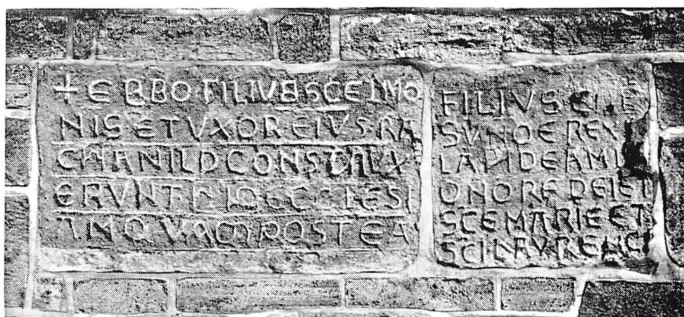 + EBBO·FILIVS SCEIMO
NIS ET VXOR EIVS RA
CHANILD CONSTRVX
ERVNT ECCLESI
AM QVAM POSTEA
FILIVS
SVNDEREX
LAPIDEAM
ONORE DEI ET
SCE MARIE ET
SCI LAVRENCI